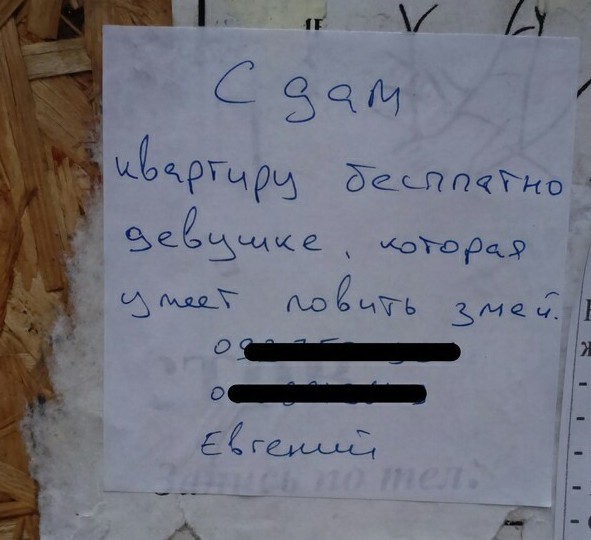 Сдам
квартиру бесплатно
девушке, которая
умеет ловить змей.
Евгений
Запись по тел: